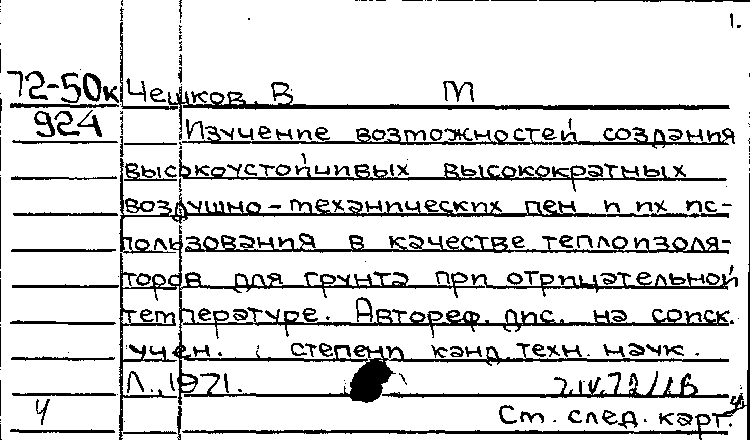 1.
72-50к Чешков, В М
924 Изучение возможностей создания
высокоустойчивых высокократных
воздушно-механических пен и их ис-
пользования в качестве теплоизоля-
торов для грунта при отрицательной
температуре. Автореф. дис. на соиск.
учен. степени канд. техн. наук.
Л., 1971.
4 См. след. карт.